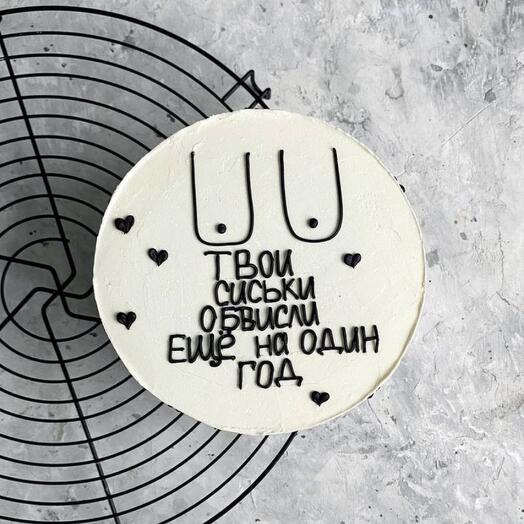 ТВОИ
СИСЬКИ
ОБВИСЛИ
ЕЩЁ НА ОДИН
ГОД